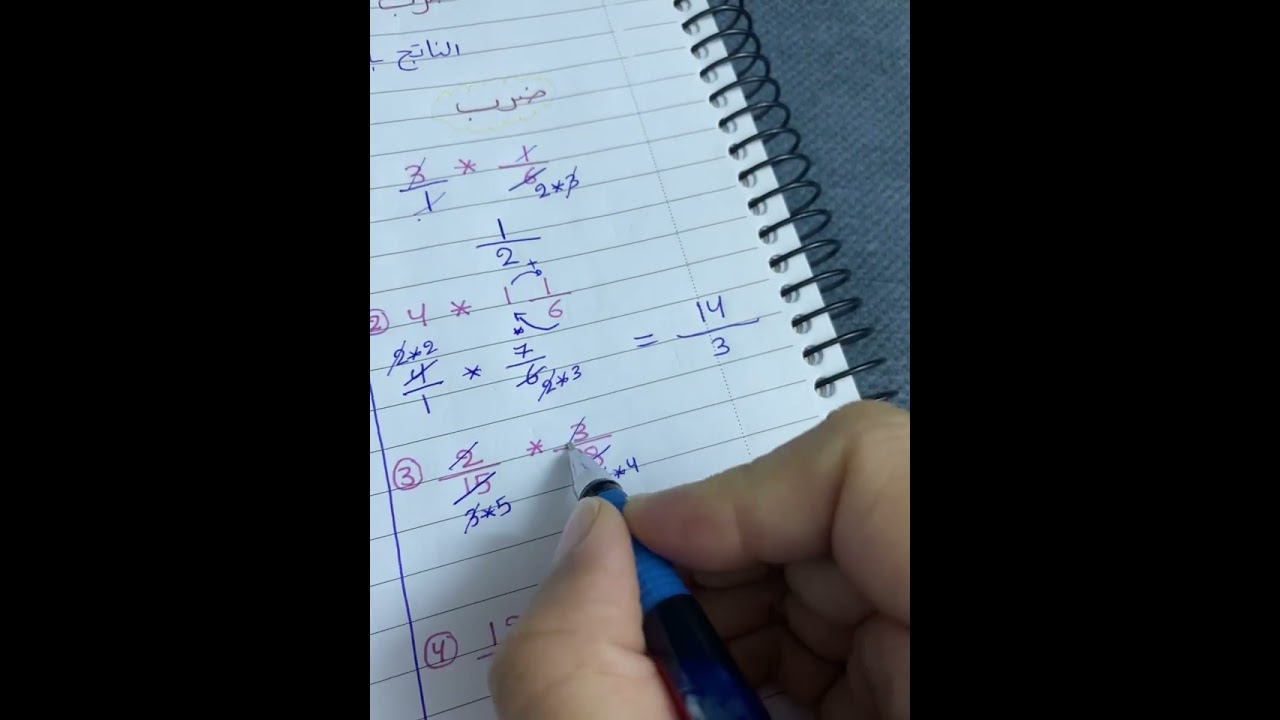 الناتج
ضرب
3/1 * 1/6
2*3
1/2
+
② 4 * 1 1/6
*
2*2
4/1 * 7/6 = 14/3
2*3
③ 2/15 * 3/8
3*5 *4
④